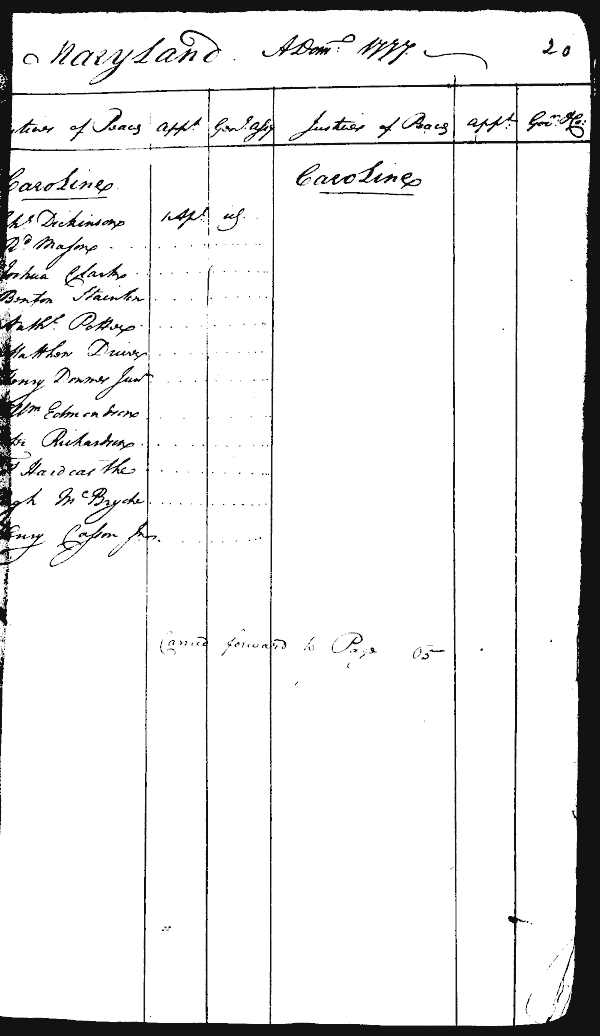 Maryland. ADomº 1777. 20
stices of Peace appt Genl Assy Justices of Peace appt Govr &Co:
Caroline Caroline
Chs Dickinson 1 Apl
Rd Mason
Joshua Clark
Benton Stainton
Nathl Potter
Matthew Driver
Henry Downes Junr
Wm Edmondson
Richardson
Hardcastle
ugh McBryde
Henry Casson Jnr.
Carried forward to Page 05